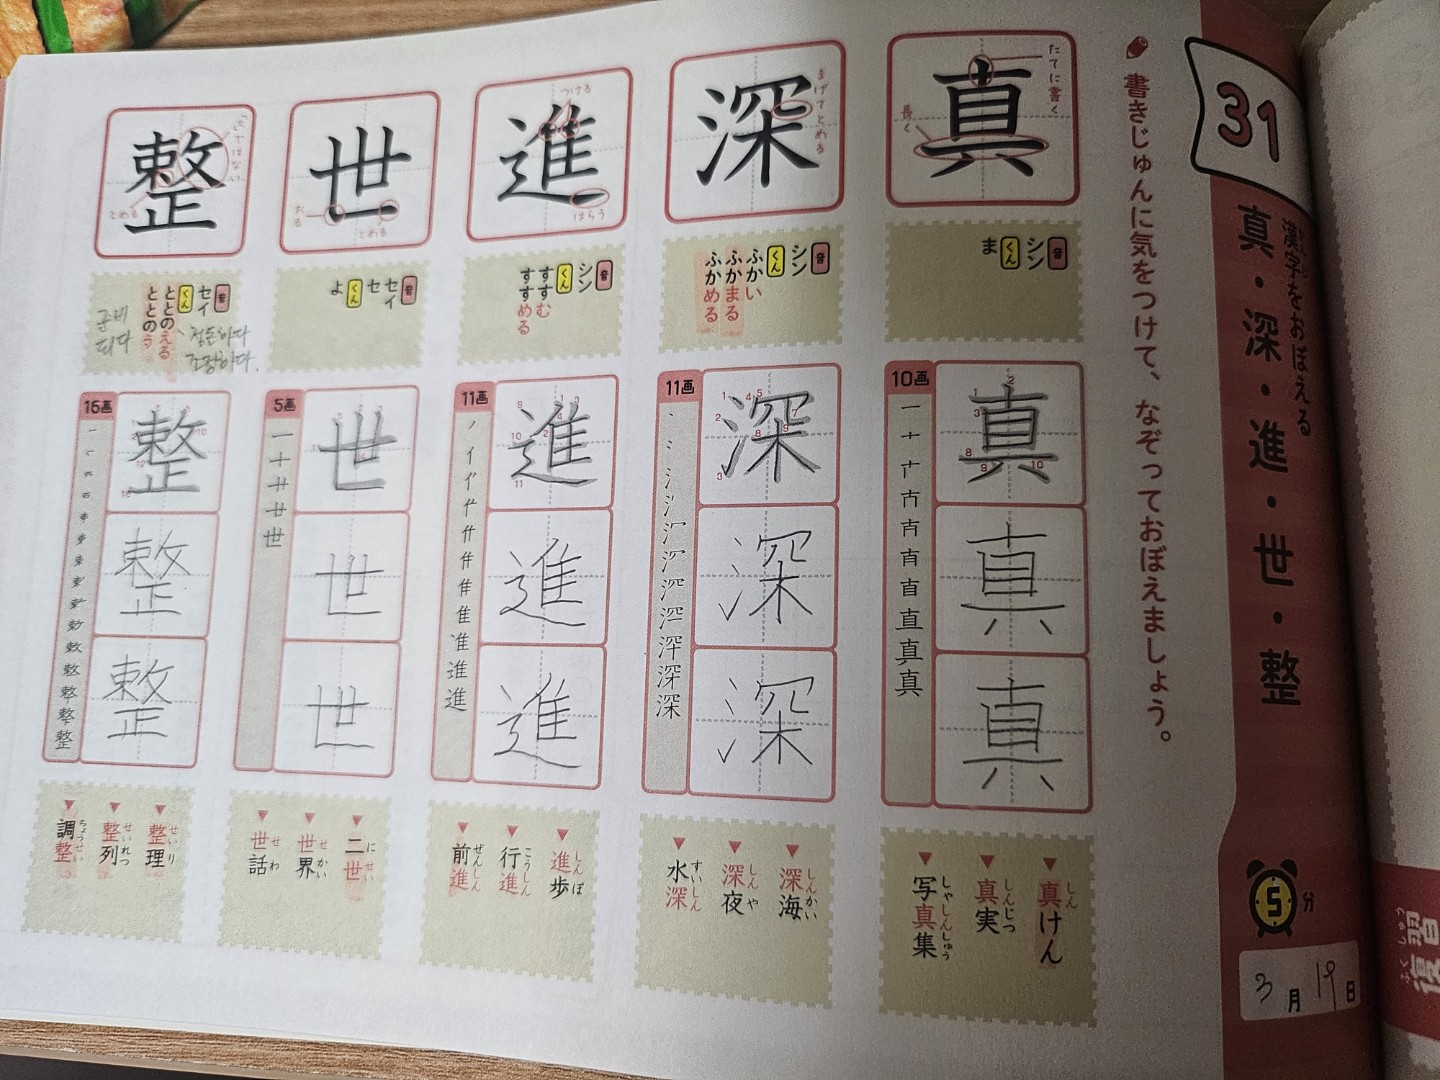 31
漢字をおぼえる
真・深・進・世・整
書きじゅんに気をつけて、なぞっておぼえましょう。
5分
3月19日
復習
ふくしゅう
真
たてに書く
長く
音
シン
くん
ま
10画
真
真
真
真けん
しん
真実
しんじつ
写真集
しゃしんしゅう
深
まげてとめる
音
シン
くん
ふかい
ふかまる
ふかめる
11画
深
深
深
深海
しんかい
深夜
しんや
水深
すいしん
進
つける
はらう
音
シン
くん
すすむ
すすめる
11画
進
進
進
進歩
しんぽ
行進
こうしん
前進
ぜんしん
世
おる
とめる
音
セイ
セ
くん
よ
5画
世
世
世
二世
にせい
世界
せかい
世話
せわ
整
とめる
音
セイ
くん
ととのえる
ととのう
정돈하다
조정하다.
16画
整
整
整
整理
せいり
整列
せいれつ
調整
ちょうせい